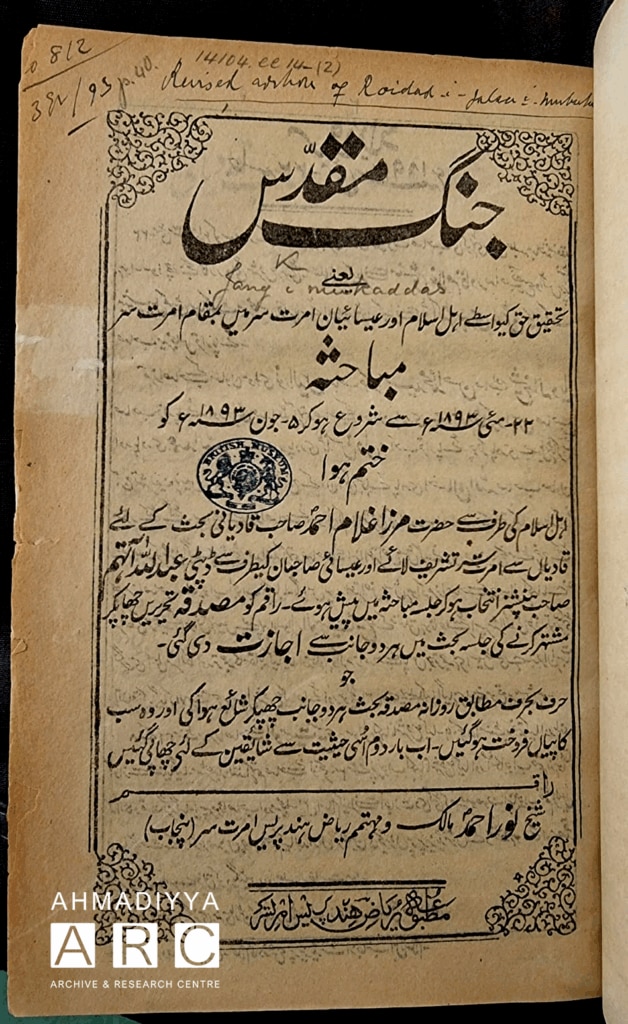 812
14104.cc 14-(2)
392/93 p.40.
Revised edition of Roidad-i-Jalsa-i-
جنگ مقدّس
یعنے
Jang i mukaddas
تحقیق حق کیواسطے اہل اسلام اور عیسائیان امرت سر میں بمقام امرت سر
مباحثہ
۲۲-مئی ۱۸۹۳؁ء سے شروع ہوکر ۵-جون ۱۸۹۳؁ء کو
ختم ہوا
BRITISH MUSEUM
اہل اسلام کی طرف سے حضرت مرزا غلام احمدؐ صاحب قادیانی بحث کے لئے
قادیاں سے امرت سر تشریف لائے اور عیسائی صاحبان کیطرف سے ڈپٹی عبداللہ آتہم
صاحب پنشنر انتخاب ہوکر جلسہ مباحثہ میں پیش ہوئے۔ راقم کو مصدقہ تحریریں چھاپکر
مشتہر کرنے کی جلسہ بحث میں ہر دو جانب سے اجازت دی گئی۔
جو
حرف بحرف مطابق روزانہ مصدقہ بحث ہر دو جانب چھپکر شائع ہوا کی اور وہ سب
کاپیاں فروخت ہوگئیں۔ اب بار دوم اُسی حیثیت سے شائقین کے لئے چھاپی گئیں
راقم
شیخ نور احمدؐ مالک و مہتمم ریاض ہند پریس امرت سر (پنجاب)
مطبوعہ ریاض ہند پریس امرتسر
AHMADIYYA
ARC
ARCHIVE & RESEARCH CENTRE